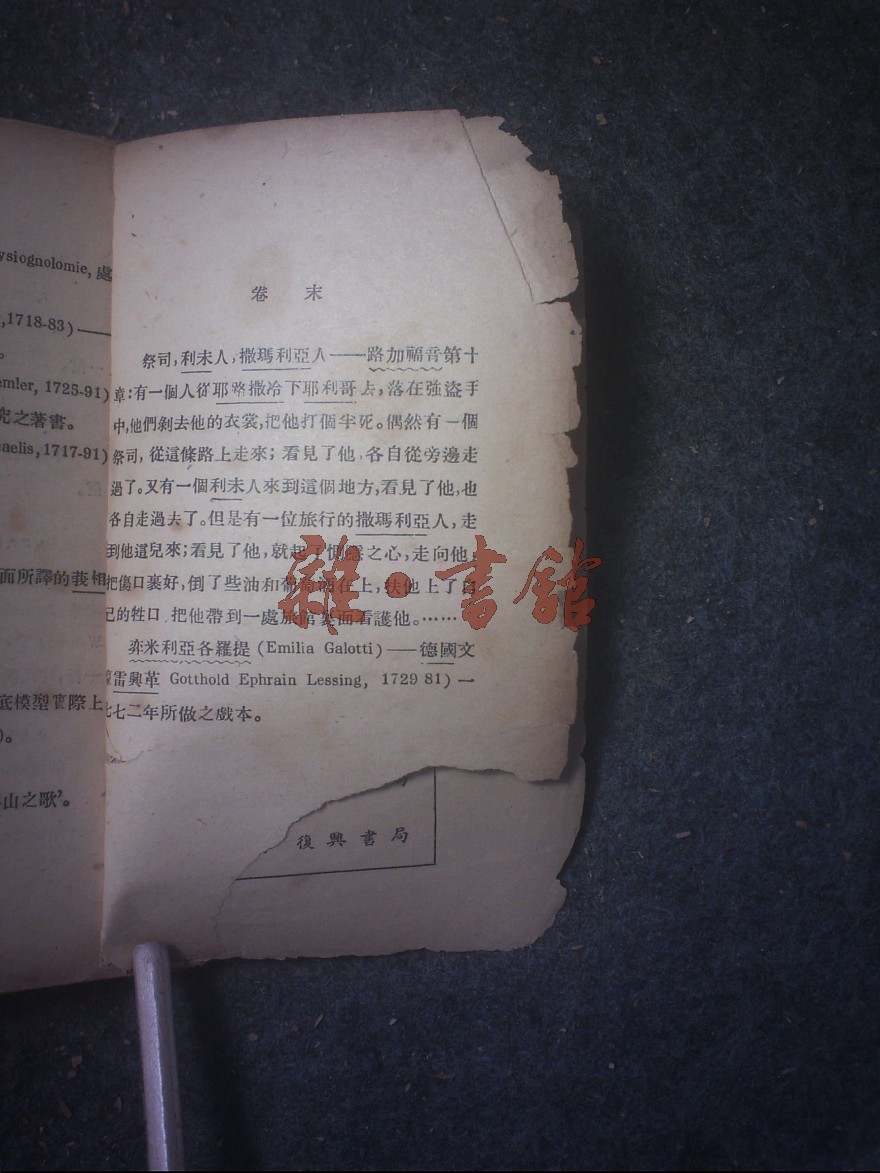 ysiognolomie, 處
,1718-83)——
。
emler, 1725-91)
究之著書。
aelis, 1717-91)
而所譯的莪相
底模型實際上
)。
山之歌’。
卷 末
祭司, 利未人, 撒瑪利亞人——路加福音第十
章: 有一個人從耶路撒冷下耶利哥去, 落在強盜手
中, 他們剝去他的衣裳, 把他打個半死。偶然有一個
祭司, 從這條路上走來; 看見了他, 各自從旁邊走
過了。又有一個利未人來到這個地方, 看見了他, 也
各自走過去了。但是有一位旅行的撒瑪利亞人, 走
到他這兒來; 看見了他, 就起了惻隱之心, 走向他,
把傷口裹好, 倒了些油和葡萄酒在上, 扶他上了自
己的牲口, 把他帶到一處旅館裏面看護他。……
弈米利亞各羅提 (Emilia Galotti)——德國文
雷興革 Gotthold Ephrain Lessing, 1729 81) 一
七七二年所做之戲本。
復興書局
雜·書館